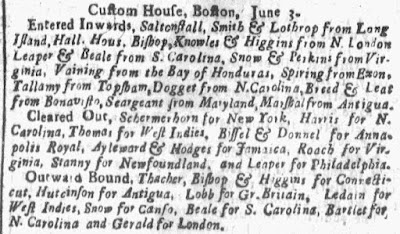 Custom House, Boston, June 3.
Entered Inwards, Saltonstall, Smith & Lothrop from Long
Island, Hall. Hous, Bishop, Knowles & Higgins from N. London
Leaper & Beale from S. Carolina, Snow & Perkins from Vir-
ginia, Vaining from the Bay of Honduras, Spiring from Exon,
Tallamy from Topsham, Dogget from N. Carolina, Breed & Leat
from Bonavisto, Seargeant from Maryland, Marshal from Antigua.
Cleared Out, Schermerhorn for New York, Harris for N.
Carolina, Thomas for West Indies, Bissel & Donnel for Anna-
polis Royal, Ayleward & Hodges for Jamaica, Roach for Vir-
ginia, Stanny for Newfoundland, and Leaper for Philadelphia.
Outward Bound, Thacher, Bishop & Higgins for Connecti-
cut, Hutcinson for Antigua, Lobb for Gr. Britain, Ledain for
West Indies, Snow for Canso, Beale for S. Carolina, Bartlet for
N. Carolina and Gerald for London.